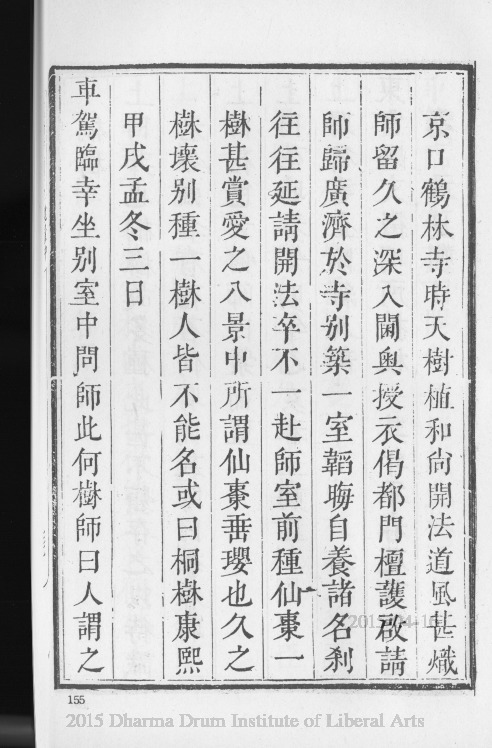 京口鶴林寺時天樹植和尙開法道風甚熾
師留久之深入閫奧授衣偈都門檀護啟請
師歸廣濟於寺別築一室韜晦自養諸名刹
往往延請開法卒不一赴師室前種仙棗一
樹甚賞愛之八景中所謂仙棗垂瓔也久之
樹壞别種一樹人皆不能名或曰桐樹康熙
甲戌孟冬三日
車駕臨幸坐别室中問師此何樹師曰人謂之
155
2015 Dharma Drum Institute of Liberal Arts